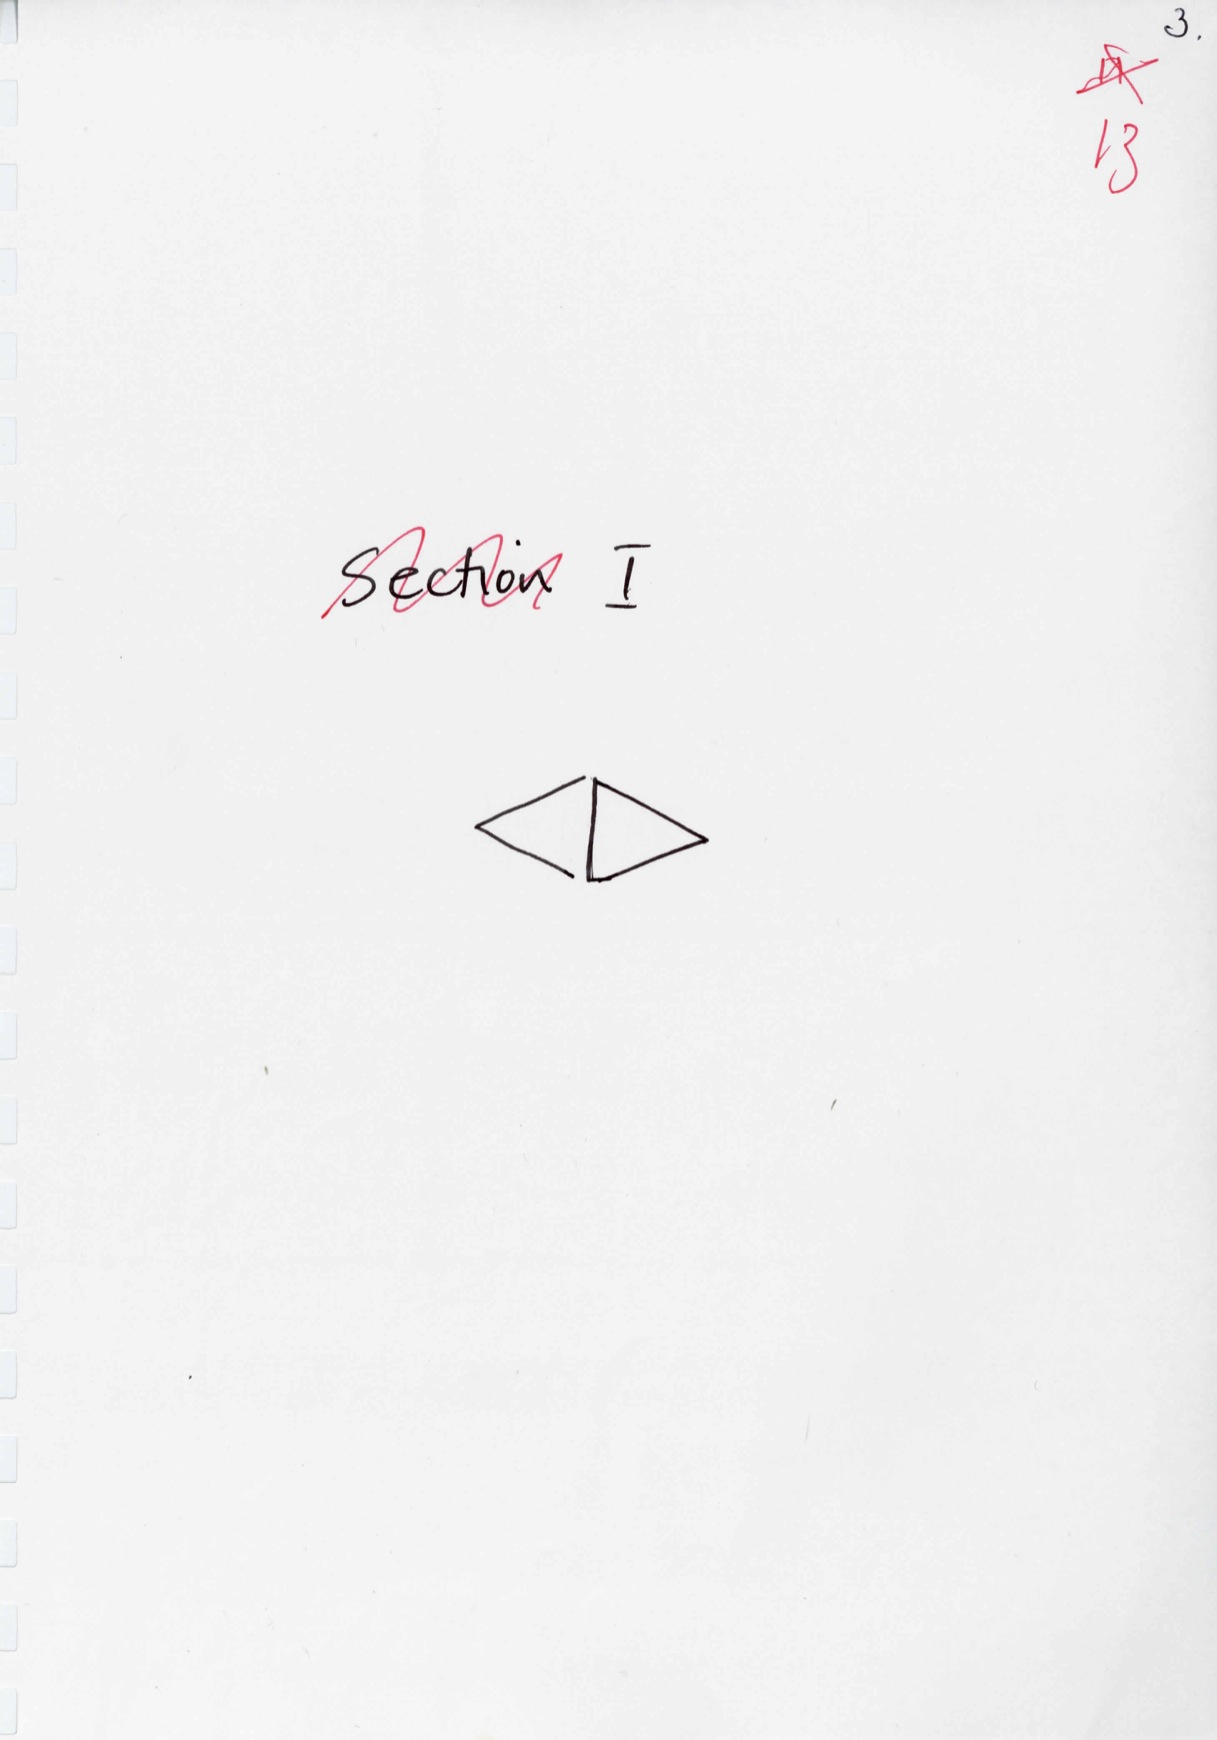 3.
13
Section I